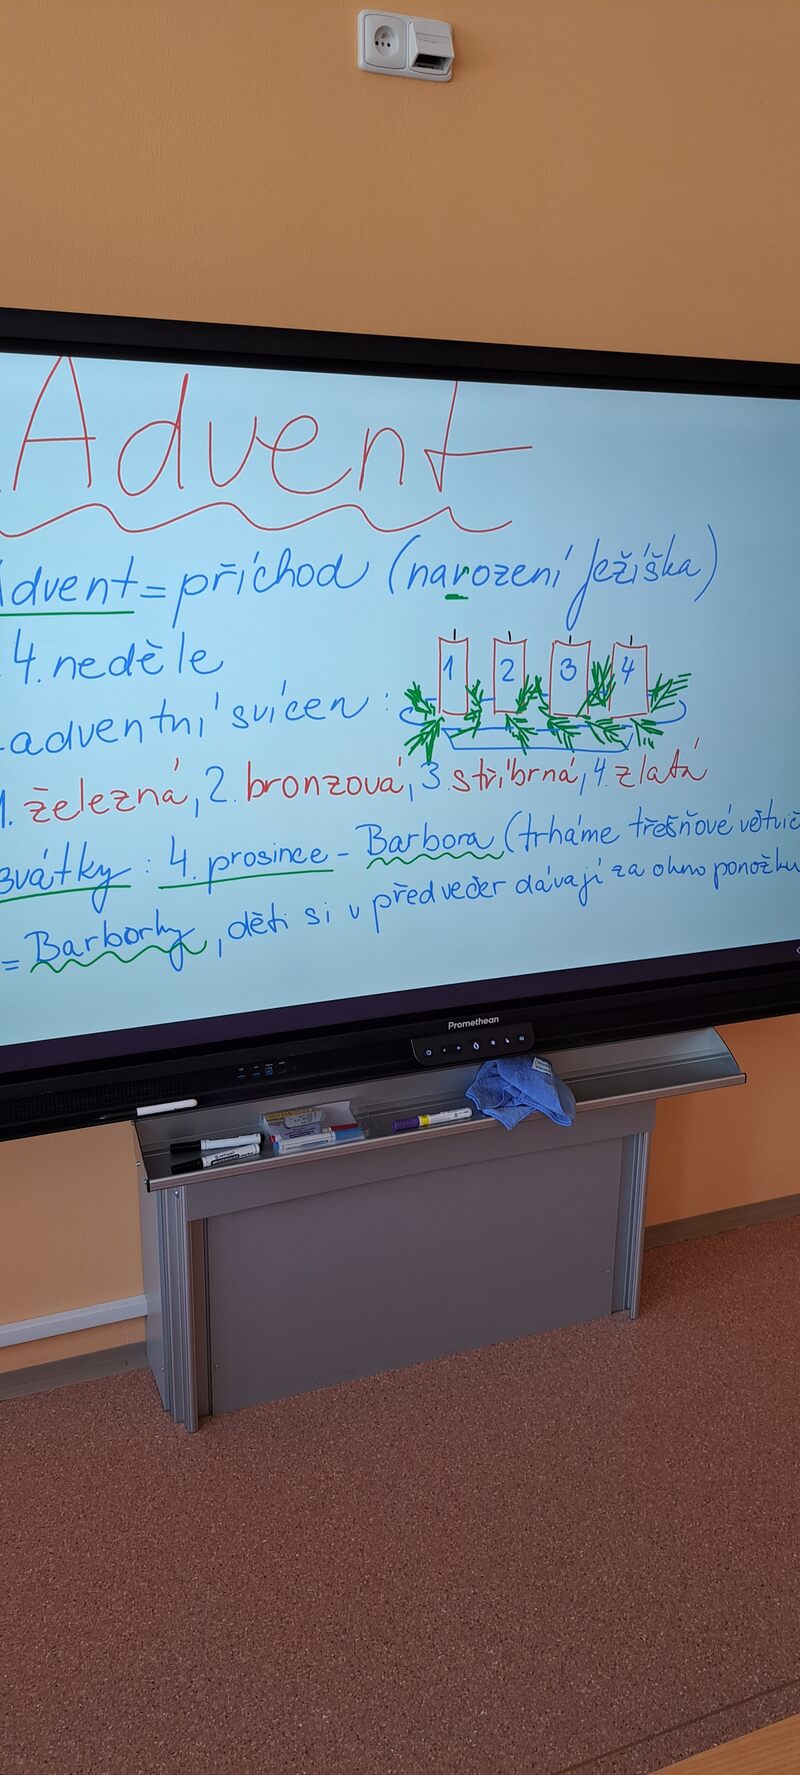 Advent
Advent = příchod (narození Ježíška)
4. neděle
1 2 3 4
- adventní svícen :
1. železná, 2. bronzová, 3. stříbrná, 4. zlatá
svátky : 4. prosince - Barbora (trháme třešňové větvič
= Barborky, děti si v předvečer dávají za okno ponožku
Promethean